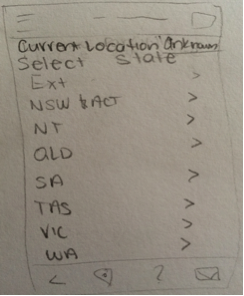 Current Location Unknown
Select State
Ext >
NSW & ACT >
NT >
QLD >
SA >
TAS >
VIC >
WA >
< ?